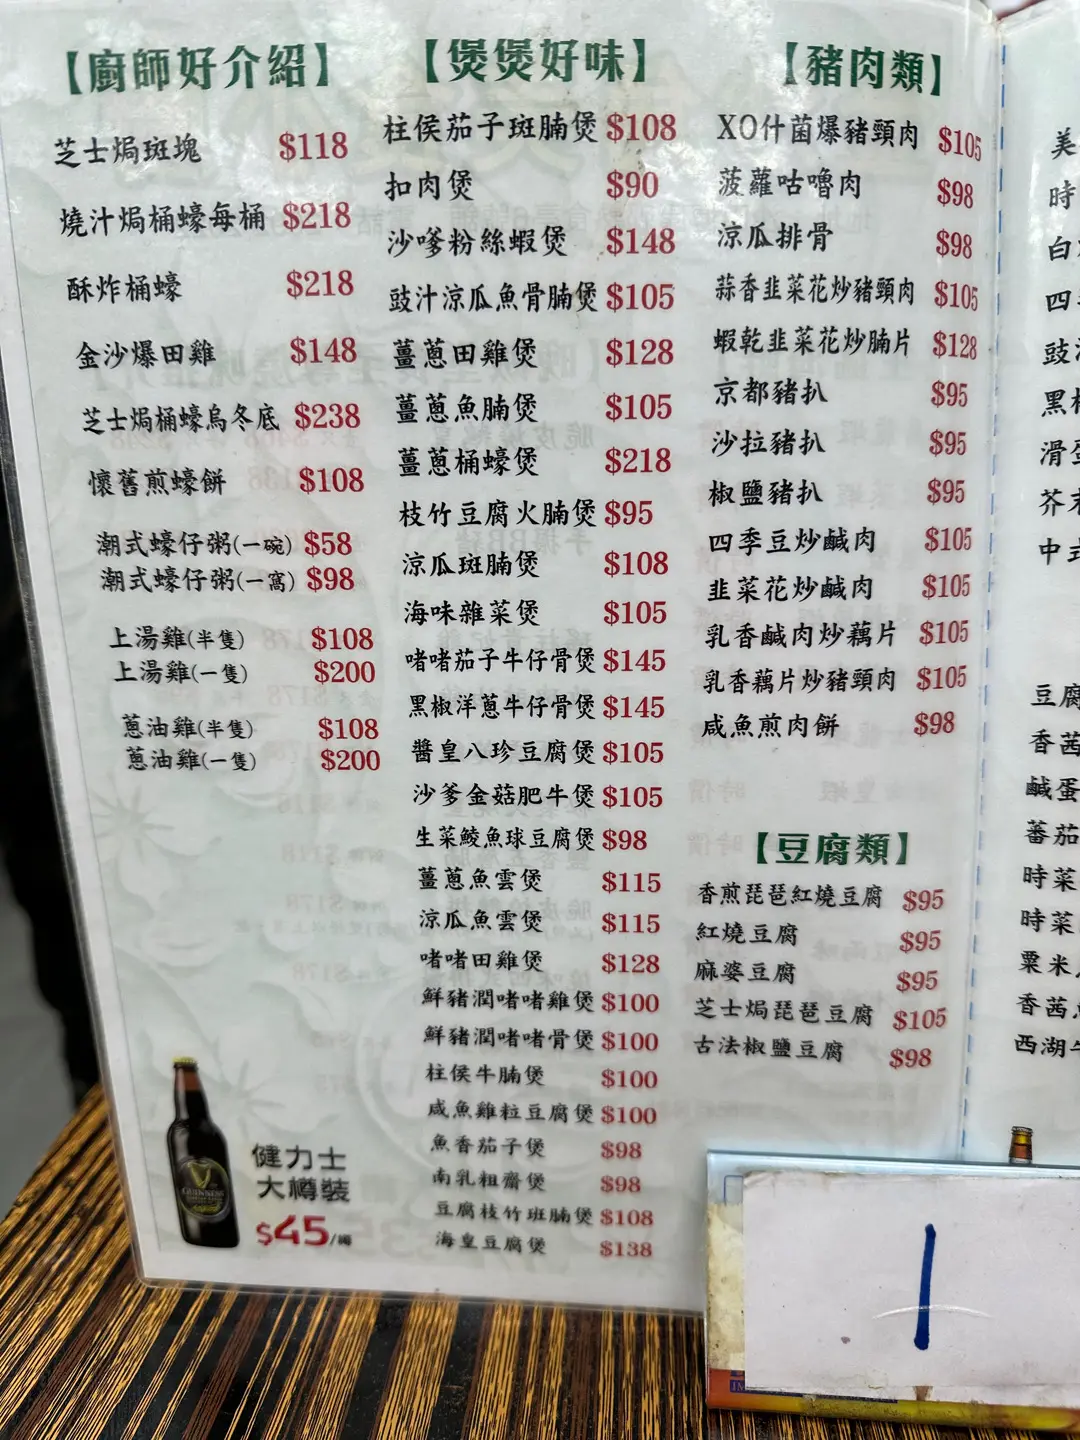 【廚師好介紹】
芝士焗斑塊 $118
燒汁焗桶蠔每桶 $218
酥炸桶蠔 $218
金沙爆田雞 $148
芝士焗桶蠔烏冬底 $238
懷舊煎蠔餅 $108
潮式蠔仔粥(一碗) $58
潮式蠔仔粥(一窩) $98
上湯雞(半隻) $108
上湯雞(一隻) $200
蔥油雞(半隻) $108
蔥油雞(一隻) $200
GUINNESS
健力士
大樽裝
$45/樽
【煲煲好味】
柱侯茄子斑腩煲 $108
扣肉煲 $90
沙嗲粉絲蝦煲 $148
豉汁涼瓜魚骨腩煲 $105
薑蔥田雞煲 $128
薑蔥魚腩煲 $105
薑蔥桶蠔煲 $218
枝竹豆腐火腩煲 $95
涼瓜斑腩煲 $108
海味雜菜煲 $105
啫啫茄子牛仔骨煲 $145
黑椒洋蔥牛仔骨煲 $145
醬皇八珍豆腐煲 $105
沙爹金菇肥牛煲 $105
生菜鯪魚球豆腐煲 $98
薑蔥魚雲煲 $115
涼瓜魚雲煲 $115
啫啫田雞煲 $128
鮮豬潤啫啫雞煲 $100
鮮豬潤啫啫骨煲 $100
柱侯牛腩煲 $100
咸魚雞粒豆腐煲 $100
魚香茄子煲 $98
南乳粗齋煲 $98
豆腐枝竹班腩煲 $108
海皇豆腐煲 $138
【豬肉類】
XO什菌爆豬頸肉 $105
菠蘿咕嚕肉 $98
涼瓜排骨 $98
蒜香韭菜花炒豬頸肉 $105
蝦乾韭菜花炒腩片 $128
京都豬扒 $95
沙拉豬扒 $95
椒鹽豬扒 $95
四季豆炒鹹肉 $105
韭菜花炒鹹肉 $105
乳香鹹肉炒藕片 $105
乳香藕片炒豬頸肉 $105
咸魚煎肉餅 $98
【豆腐類】
香煎琵琶紅燒豆腐 $95
紅燒豆腐 $95
麻婆豆腐 $95
芝士焗琵琶豆腐 $105
古法椒鹽豆腐 $98
美
時
白
四
豉
黑椒
滑蛋
芥末
中式
豆腐
香茜
鹹蛋
蕃茄
時菜
時菜
粟米
香茜
西湖牛
1